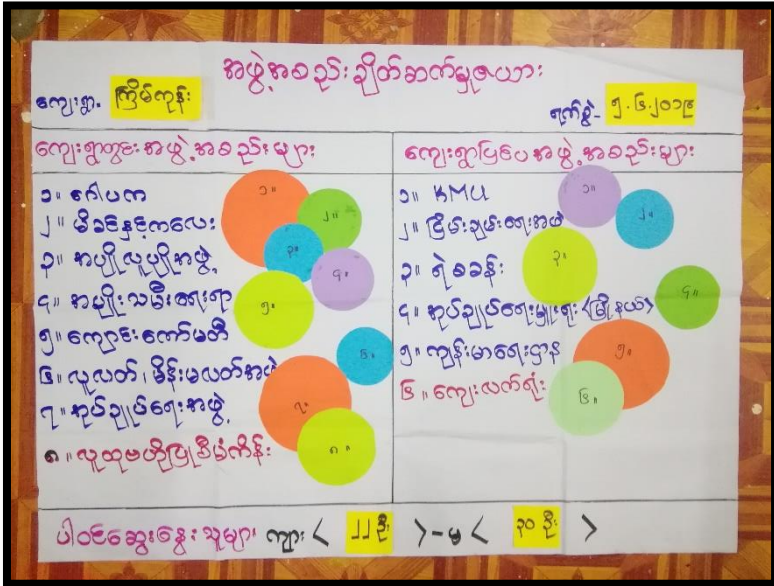 အဖွဲ့အစည်းချိတ်ဆက်မှုဇယား
ကျေးရွာ. ကြိမ်ကုန်း
ရက်စွဲ- ၅.၆.၂၀၁၉
ကျေးရွာတွင်းအဖွဲ့အစည်းများ
၁။ ဂေါပက
၂။ မိခင်နှင့်ကလေး
၃။ အပျိုလူပျိုအဖွဲ့
၄။ အမျိုးသမီးရေးရာ
၅။ ကျောင်းကော်မတီ
၆။ လူလတ်၊ မိန်းမလတ်အဖွဲ့
၇။ အုပ်ချုပ်ရေးအဖွဲ့
၈။ လူထုဗဟိုပြုစီမံကိန်း
၁။
၂။
၃။
၄။
၅။
၆။
၇။
၈။
ကျေးရွာပြင်ပအဖွဲ့အစည်းများ
၁။ KMU
၂။ ငြိမ်းချမ်းရေးအဖွဲ့
၃။ ရဲစခန်း
၄။ အုပ်ချုပ်ရေးမှူးရုံး <မြို့နယ်>
၅။ ကျန်းမာရေးဌာန
၆။ ကျေးလက်ရုံး
၁။
၂။
၃။
၄။
၅။
၆။
ပါဝင်ဆွေးနွေးသူများ ကျား < ၂၂ဦး > - မ < ၃၀ ဦး >